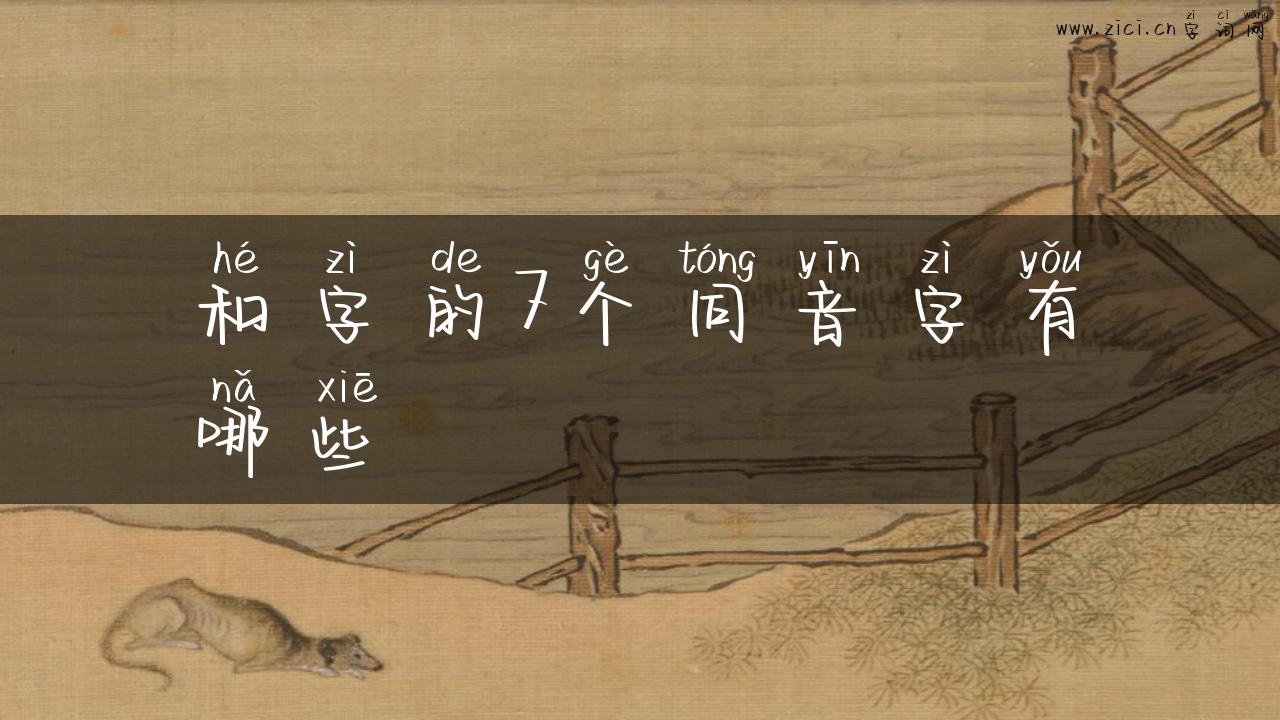 zì cí wǎng
www.zici.cn字词网
hé zì de gè tóng yīn zì yǒu
和字的7个同音字有
nǎ xiē
哪些